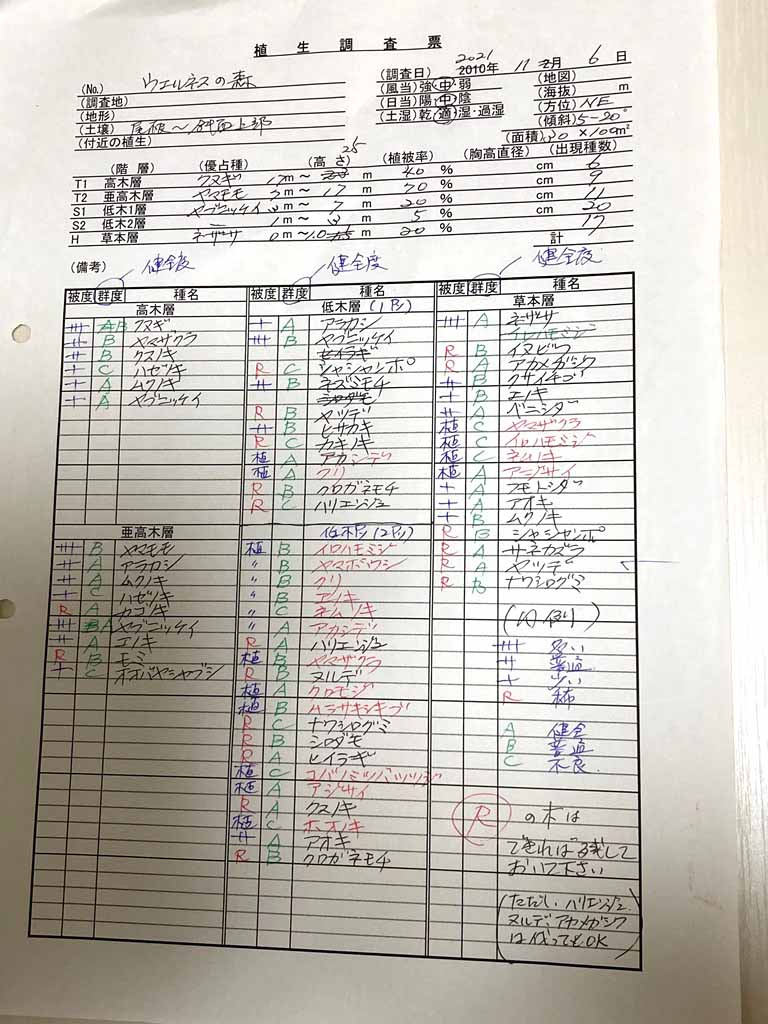 植生調査票
(No.) ウエルネスの森
(調査地)
(地形)
(土壌) 尾根〜斜面上部
(付近の植生)
(調査日) 2021 2010年 11月 6日
(風当) 強・中・弱 (地図)
(日当) 陽・中・陰 (海抜) m
(土湿) 乾・適・湿・過湿 (方位) NE
(傾斜) 5-20°
(面積) 30×100㎡
(階層) (優占種) (高さ) (植被率) (胸高直径) (出現種数)
T1 高木層 クヌギ 17m〜25m 40% cm 6
T2 亜高木層 ヤマモモ 7m〜17m 70% cm 9
S1 低木1層 ヤブニッケイ 3m〜7m 20% cm 11
S2 低木2層 1m〜3m 5% cm 20
H 草本層 ネザサ 0m〜1.0m 20% 17
計
(備考) 健全度 健全度 健全度
被度 群度 種名 被度 群度 種名 被度 群度 種名
高木層
卅 AB クヌギ
廾 B ヤマザクラ
廾 B クスノキ
+ C ハゼノキ
+ A ムクノキ
+ A ヤブニッケイ
亜高木層
卅 B ヤマモモ
廾 A アラカシ
廾 A ムクノキ
+ C ハゼノキ
R A カゴノキ
卅 BA ヤブニッケイ
廾 A エノキ
R B モミ
+ C オオバヤシャブシ
低木層(1ﾀﾝ)
+ A アラカシ
卅 B ヤブニッケイ
ヒイラギ
R C シャシャンポ
廾 B ネズミモチ
シロダモ
R B ヤツデ
廾 B ヒサカキ
R C カキノキ
植 A アカシデ
植 A クリ
R B クロガネモチ
R C ハリエンジュ
低木ﾀﾝ(2ﾀﾝ)
植 B イロハモミジ
〃 B ヤマボウシ
〃 B クリ
〃 B エノキ
〃 C ネムノキ
〃 A アカシデ
R A ハリエンジュ
植 B ヤマザクラ
R B ヌルデ
植 A クロモジ
植 B ムラサキシキブ
R C ナワシログミ
R B シロダモ
R A ヒイラギ
植 C コバノミツバツツジ
植 A アジサイ
R A クスノキ
植 C ホオノキ
廾 A アオキ
R B クロガネモチ
草本層
卅 A ネザサ
イロハモミジ
R B イヌビワ
R A アカメガシワ
廾 B クサイチゴ
+ B エノキ
廾 A ベニシダ
植 C ヤマザクラ
植 C イロハモミジ
植 C ネムノキ
植 A アジサイ
+ A フモトシダ
+ A アオキ
+ B ムクノキ
R B シャシャンポ
R A サネカズラ
R A ヤツデ
R B ナワシログミ
(凡例)
卅 多い
廾 普通
+ 少い
R 稀
A 健全
B 普通
C 不良
R の木は
できれば残して
おいて下さい
(ただし、ハリエンジュ
ヌルデ、アカメガシワ
は伐ってもOK)